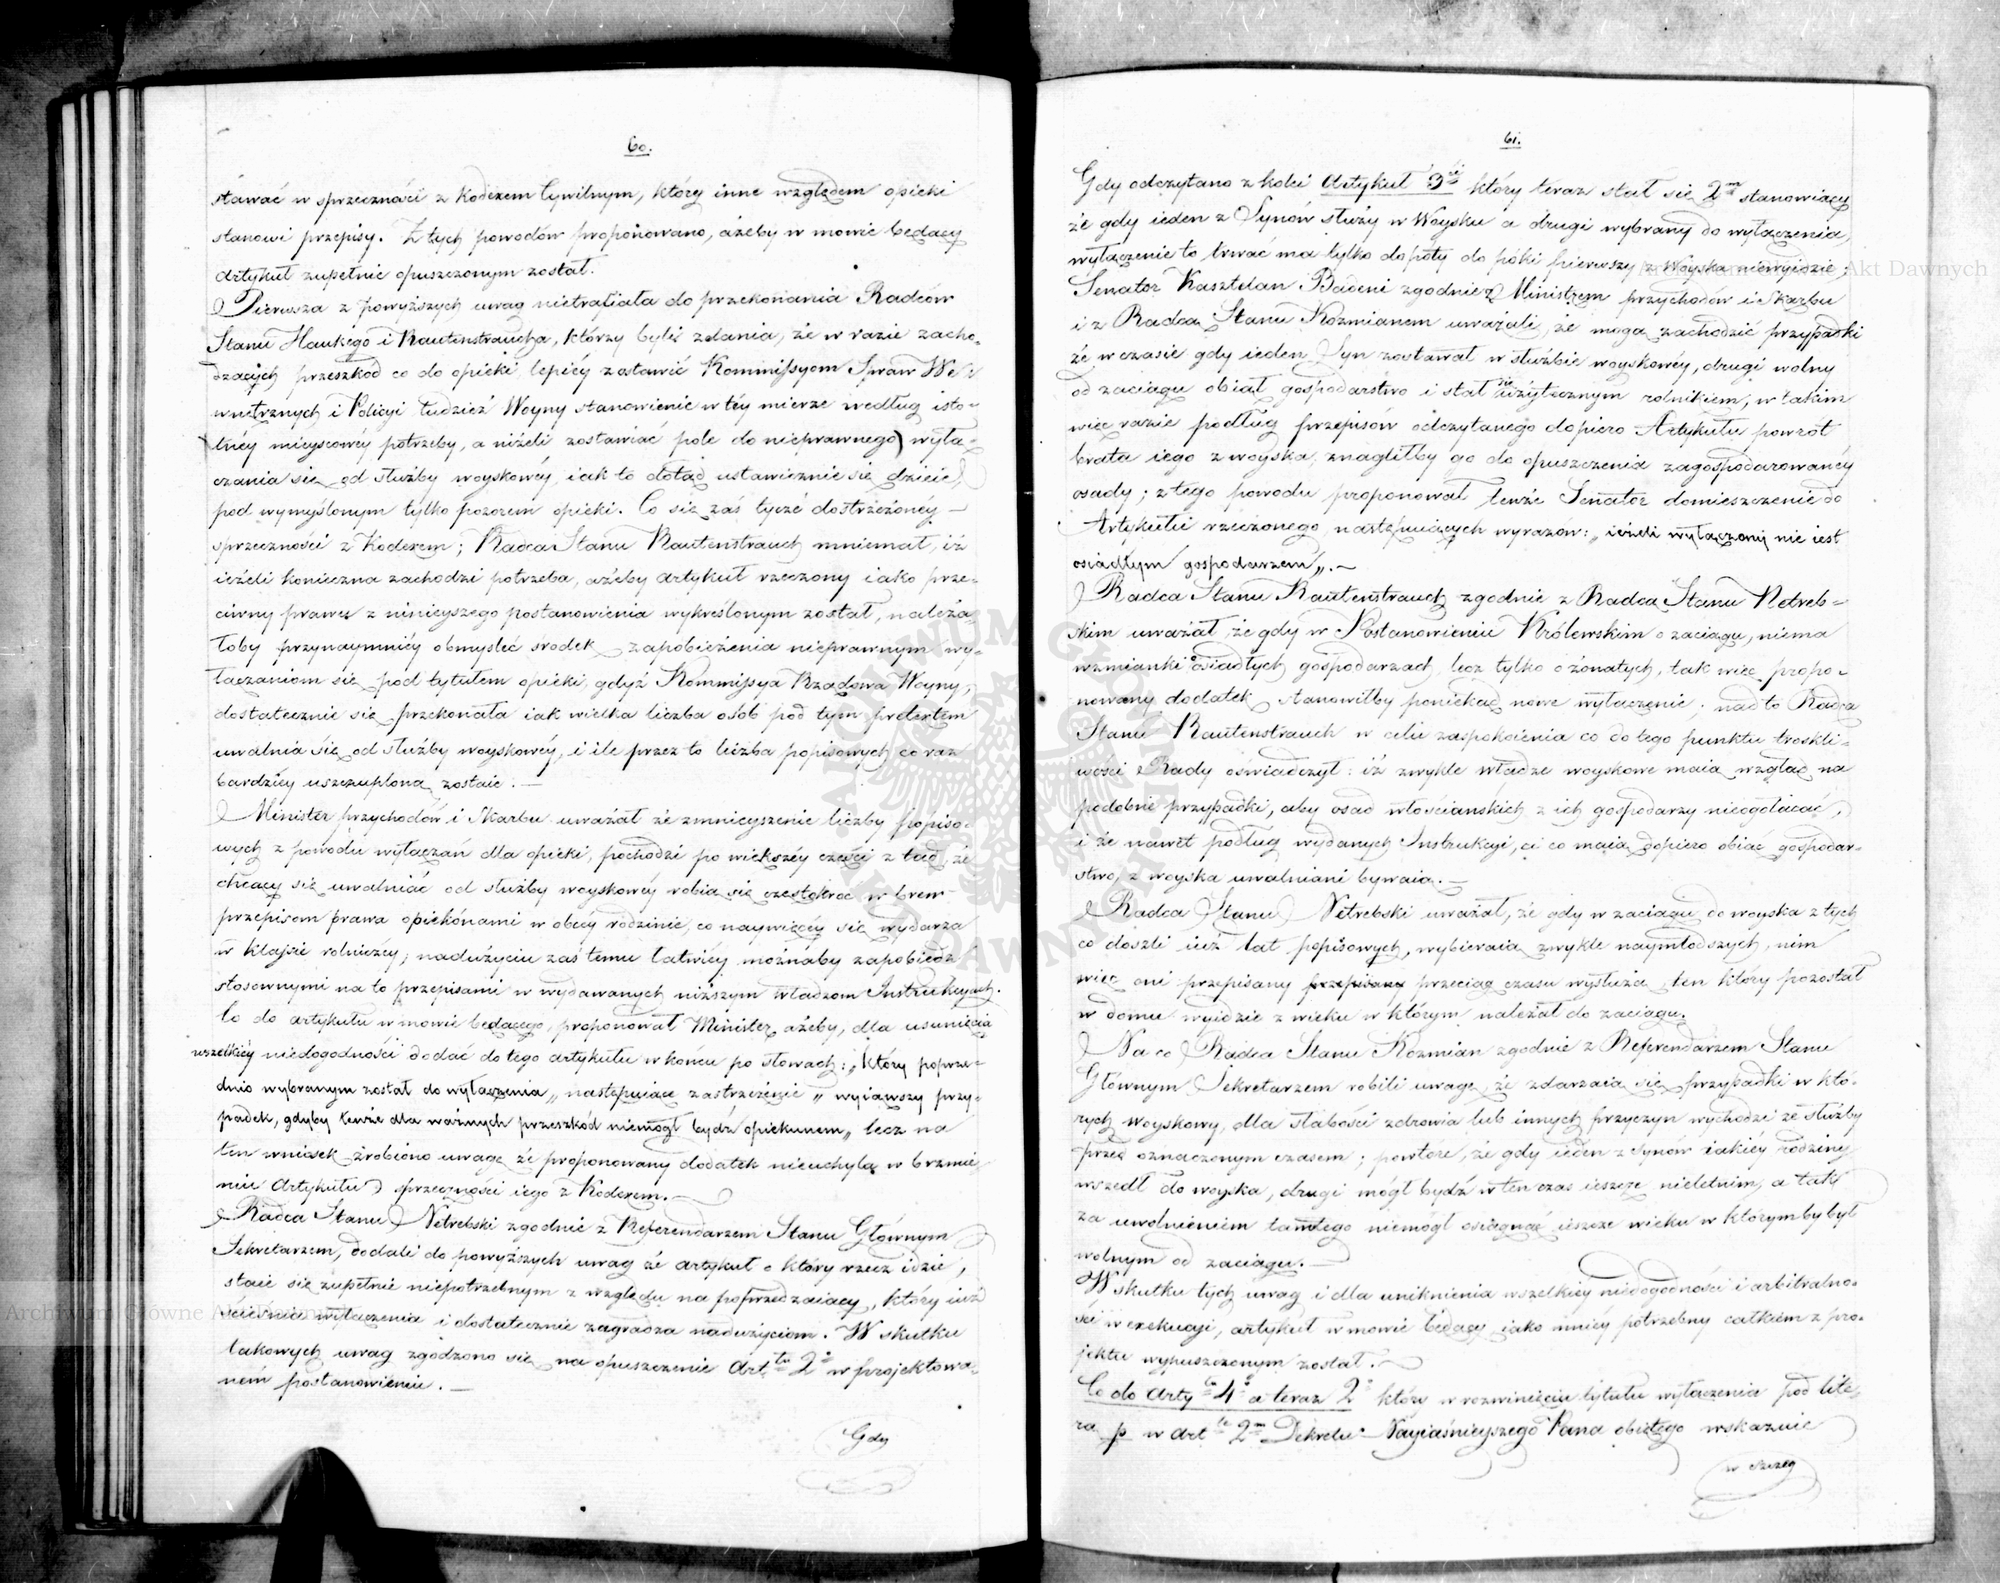 60.
stawać w sprzeczności z Kodexem Cywilnym, który inne względem opieki
stanowi przepisy. Z tych powodów proponowano, ażeby w mowie będący
artykuł zupełnie opuszczonym został.
Pierwsza z powyższych uwag nietrafiała do przekonania Radców
Stanu Haukego i Rautenstraucha, którzy byli zdania, że w razie zacho-
dzących przeszkód co do opieki, lepiéy zostawić Kommissyom Spraw We-
wnętrznych i Policyi tudzież Woyny stanowienie w téy mierze według isto-
tnéy mieyscowéy potrzeby, a niżeli zostawiać pole do nieprawnego wyłą-
czania się od służby woyskowéy, iak to dotąd ustawicznie się dzieie,
pod wymyślonym tylko pozorem opieki. Co się zaś tycze dostrzeżonéy
sprzeczności z Kodexem; Radca Stanu Rautenstrauch mniemał, iż
ieżeli konieczna zachodzi potrzeba, ażeby artykuł rzeczony iako prze-
ciwny prawu z ninieyszego postanowienia wykreślonym został, należa-
łoby przynaymniéy obmyśleć środek zapobieżenia nieprawnym wy-
łączaniom się pod tytułem opieki, gdyż Kommissya Rządowa Woyny,
dostatecznie się przekonała iak wielka liczba osób pod tym pretextem
uwalnia się od służby woyskowéy, i ile przez to liczba popisowych co raz
bardziéy uszczuploną zostaie.
Minister przychodów i Skarbu uważał że zmnieyszenie liczby popiso-
wych z powodu wyłączań dla opieki, pochodzi po większéy części z tąd, że
chcący się uwalniać od służby woyskowéy robią się częstokroć w brew
przepisom prawa opiekónami w obcéy rodzinie, co naywięcéy się wydarza
w klassie rolniczéy; nadużyciu zaś temu łatwiéy możnaby zapobiedz
stosownymi na to przepisami w wydawanych niższym władzom Instrukcyach.
Co do artykułu w mowie będącego, proponował Minister, ażeby, dla usunięcia
wszelkiéy niedogodności dodać do tego artykułu w końcu po słowach: „który poprze-
dnio wybranym został do wyłączenia„ następuiące zastrzeżenie „ wyiąwszy przy-
padek, gdyby tenże dla ważnych przeszkód niemógł bydź opiekunem„ lecz na
ten wniosek zrobiono uwagę że proponowany dodatek nieuchyla w brzmie-
niu Artykułu sprzeczności iego z Kodexem.
Radca Stanu Netrebski zgodnie z Referendarzem Stanu Głównym
Sekretarzem, dodali do powyższych uwag że artykuł o który rzecz idzie,
staie się zupełnie niepotrzebnym z względu na poprzedzaiący, który iuż
ścieśnia wyłączenia i dostatecznie zagradza nadużyciom. W skutku
takowych uwag zgodzono się na opuszczenie Art.łu 2o w projektowa-
ném postanowieniu.
Gdy
61.
Gdy odczytano z kolei Artykuł 3ci który teraz stał się 2m stanowiący
że gdy ieden z Synów służy w Woysku a drugi wybrany do wyłączenia,
wyłączenie to trwać ma tylko dopóty do póki pierwszy z Woyska niewyidzie;
Senator Kasztelan Badeni zgodnie z Ministrem przychodów i Skarbu
i z Radcą Stanu Koźmianem uważali, że mogą zachodzić przypadki
że w czasie gdy ieden Syn zostawał w służbie woyskowéy, drugi wolny
od zaciągu obiął gospodarstwo i stał się użytecznym rolnikiem, w takim
więc razie podług przepisów odczytanego dopiero Artykułu powrót
brata iego z woyska, znagliłby go do opuszczenia zagospodarowanéy
osady; z tego powodu proponował tenże Senator domieszczenie do
Artykułu rzeczonego następuiących wyrazów: „ ieżeli wyłączony nie iest
osiadłym gospodarzem„.
Radca Stanu Rautenstrauch zgodnie z Radcą Stanu Netreb-
skim uważał, że gdy w Postanowieniu Królewskim o zaciągu, niema
wzmianki o osiadłych gospodarzach, lecz tylko o żonatych, tak więc propo-
nowany dodatek stanowiłby poniekąd nowe wyłączenie, nad to Radca
Stanu Rautenstrauch w celu zaspokoienia co do tego punktu troskli-
wości Rady oświadczył: iż zwykle władze woyskowe maią wzgląd na
podobne przypadki, aby osad włościańskich z ich gospodarzy nieogołacać,
i że nawet podług wydanych Instrukcyi, ci co maią dopiero obiąć gospodar-
stwo, z woyska uwalniani bywaią.
Radca Stanu Netrebski uważał, że gdy w zaciągu do woyska z tych
co doszli iuż lat popisowych, wybieraią zwykle naymłodszych, nim
więc oni przepisany przepisany przeciąg czasu wysłużą, ten który pozostał
w domu wyidzie z wieku w którym należał do zaciągu.
Na co Radca Stanu Koźmian zgodnie z Referendarzem Stanu
Głównym Sekretarzem robili uwagę, że zdarzaią się przypadki w któ-
rych woyskowy, dla słabości zdrowia lub innych przyczyn wychodzi ze służby
przed oznaczonym czasem; powtóre, że gdy ieden z synów iakiéy rodziny
wszedł do woyska, drugi mógł bydź w ten czas ieszcze nieletnim, a tak
za uwolnieniem tamtego niemógł osiągnąć ieszcze wieku w którym by był
wolnym od zaciągu.
W skutku tych uwag i dla uniknienia wszelkiéy niedogodności i arbitralno-
ści w exekucyi, artykuł w mowie będący iako mniéy potrzebny całkiem z pro-
jektu wypuszczonym został.
Co do Arty.łu 4o a teraz 2o który w rozwinięciu tytułu wyłączenia pod lite-
rą p w art.le 2m Dekretu Nayiaśnieyszego Pana obiętego wskazuie
w szczeg
Archiwum Główne Akt Dawnych